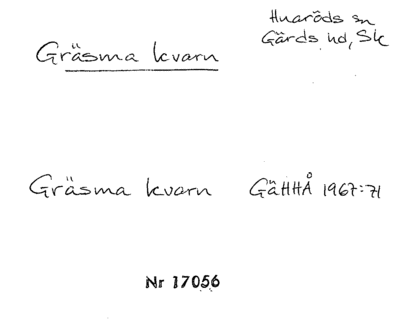 Huaröds sn
Gärds hd, Sk
Gräsma kvarn
Gräsma kvarn GäHHÅ 1967:71
Nr 17056